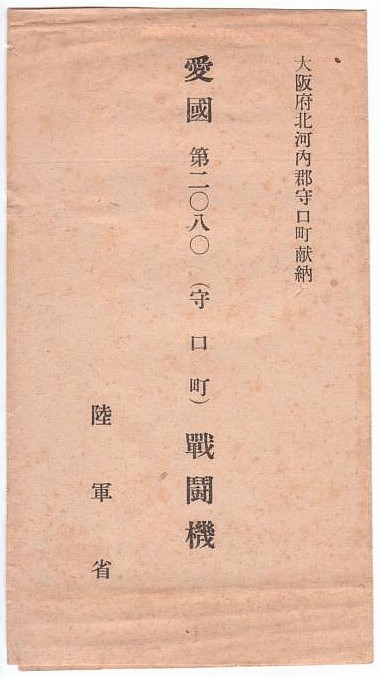 大阪府北河內郡守口町献納
愛國 第二〇八〇 （守口町） 戰鬪機
陸軍省